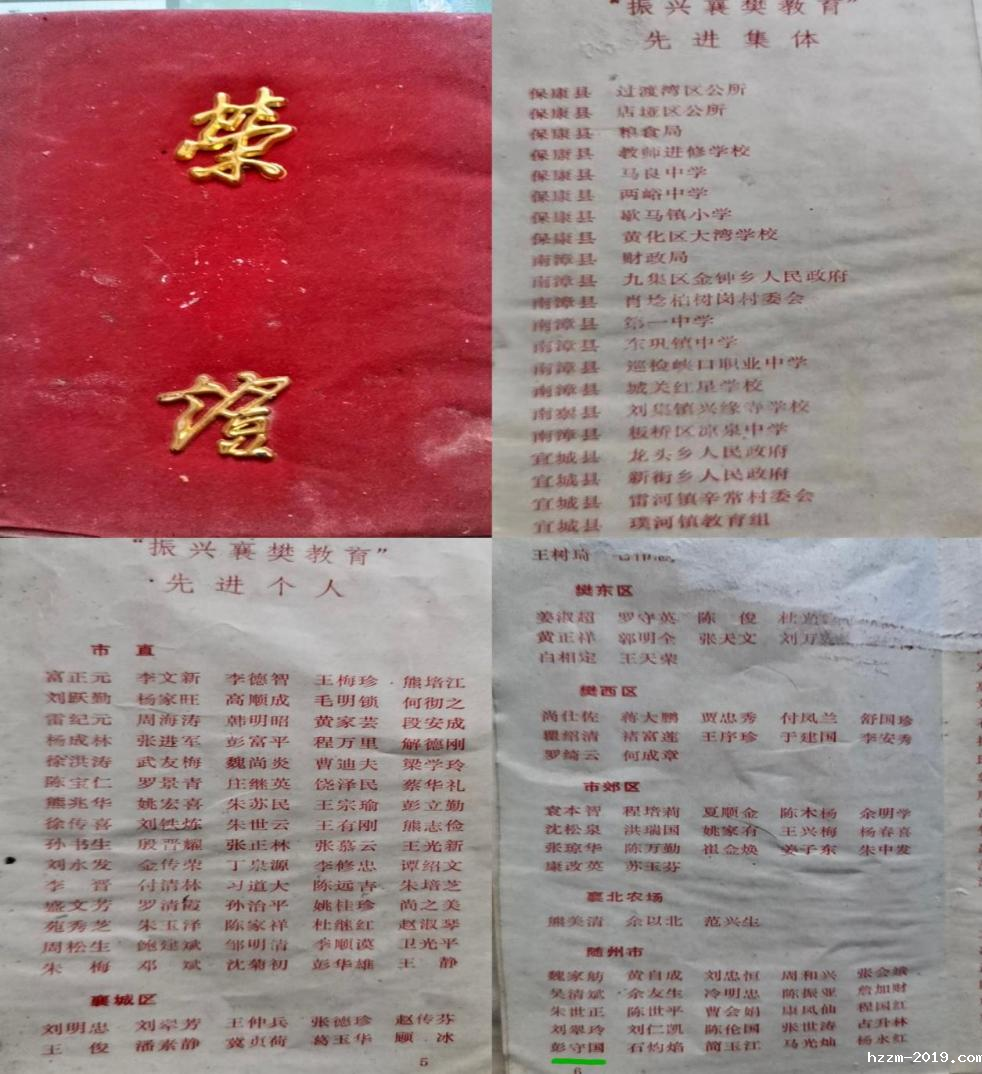 荣
坛
"振兴襄樊教育"
先进集体
保康县 过渡湾区公所
保康县 店垭区公所
保康县 粮食局
保康县 教师进修学校
保康县 马良中学
保康县 两峪中学
保康县 歇马镇小学
保康县 黄化区大湾学校
南漳县 财政局
南漳县 九集区金钟乡人民政府
南漳县 肖埝柏树岗村委会
南漳县 第一中学
南漳县 东巩镇中学
南漳县 巡检峡口职业中学
南漳县 城关红星学校
南漳县 刘集镇兴缘寺学校
南漳县 板桥区凉泉中学
宜城县 龙头乡人民政府
宜城县 新街乡人民政府
宜城县 雷河镇辛常村委会
宜城县 璞河镇教育组
"振兴襄樊教育"
先进个人
市直
富正元 李文新 李德智 王梅珍 熊培江
刘跃勤 杨家旺 高顺成 毛明锁 何彻之
雷纪元 周海涛 韩明昭 黄家芸 段安成
杨成林 张进军 彭富平 程万里 解德刚
徐洪涛 武友梅 魏尚炎 曹迪夫 梁学玲
陈宝仁 罗景青 庄继英 饶泽民 蔡华礼
熊兆华 姚宏喜 朱苏民 王宗瑜 彭立勤
徐传喜 刘铁炼 朱世云 王有刚 熊志俭
孙书生 殷晋耀 张正林 张慕云 王光新
刘永发 金传荣 丁泉源 李修忠 谭绍文
李晋 付清林 习道大 陈远吉 朱培芝
盛文芳 罗清霞 孙治平 姚桂珍 尚之美
苑秀芝 朱玉泽 陈家祥 杜继红 赵淑琴
周松生 鲍建斌 邹明清 李顺漠 卫光平
朱梅 邓斌 沈菊初 彭华雄 王静
襄城区
刘明忠 刘翠芳 王仲兵 张德珍 赵传芬
王俊 潘素静 冀贞荷 葛玉华 顾冰
5
王树琦
樊东区
姜淑超 罗守英 陈俊 杜
黄正祥 郭明全 张天文 刘万
白相定 王天荣
樊西区
尚仕佐 蒋大鹏 贾忠秀 付凤兰 舒国珍
瞿绍清 褚富莲 王序珍 于建国 李安秀
罗绮云 何成章
市郊区
袁本智 程培莉 夏顺金 陈木杨 余明学
沈松泉 洪瑞国 姚家有 王兴梅 杨春喜
张琼华 陈万勤 崔金焕 姜子东 朱中发
康改英 苏玉芬
襄北农场
熊美清 余以北 范兴生
随州市
魏家舫 黄自成 刘忠恒 周和兴 张会娥
吴清斌 余友生 冷明忠 陈振亚 詹加财
朱世正 陈世平 曹会娟 康凤仙 程国红
刘翠玲 刘仁凯 陈伦国 张世涛 占升林
彭守国 石灼焰 简玉江 马光灿 杨永红
6
hzzm-2019.com